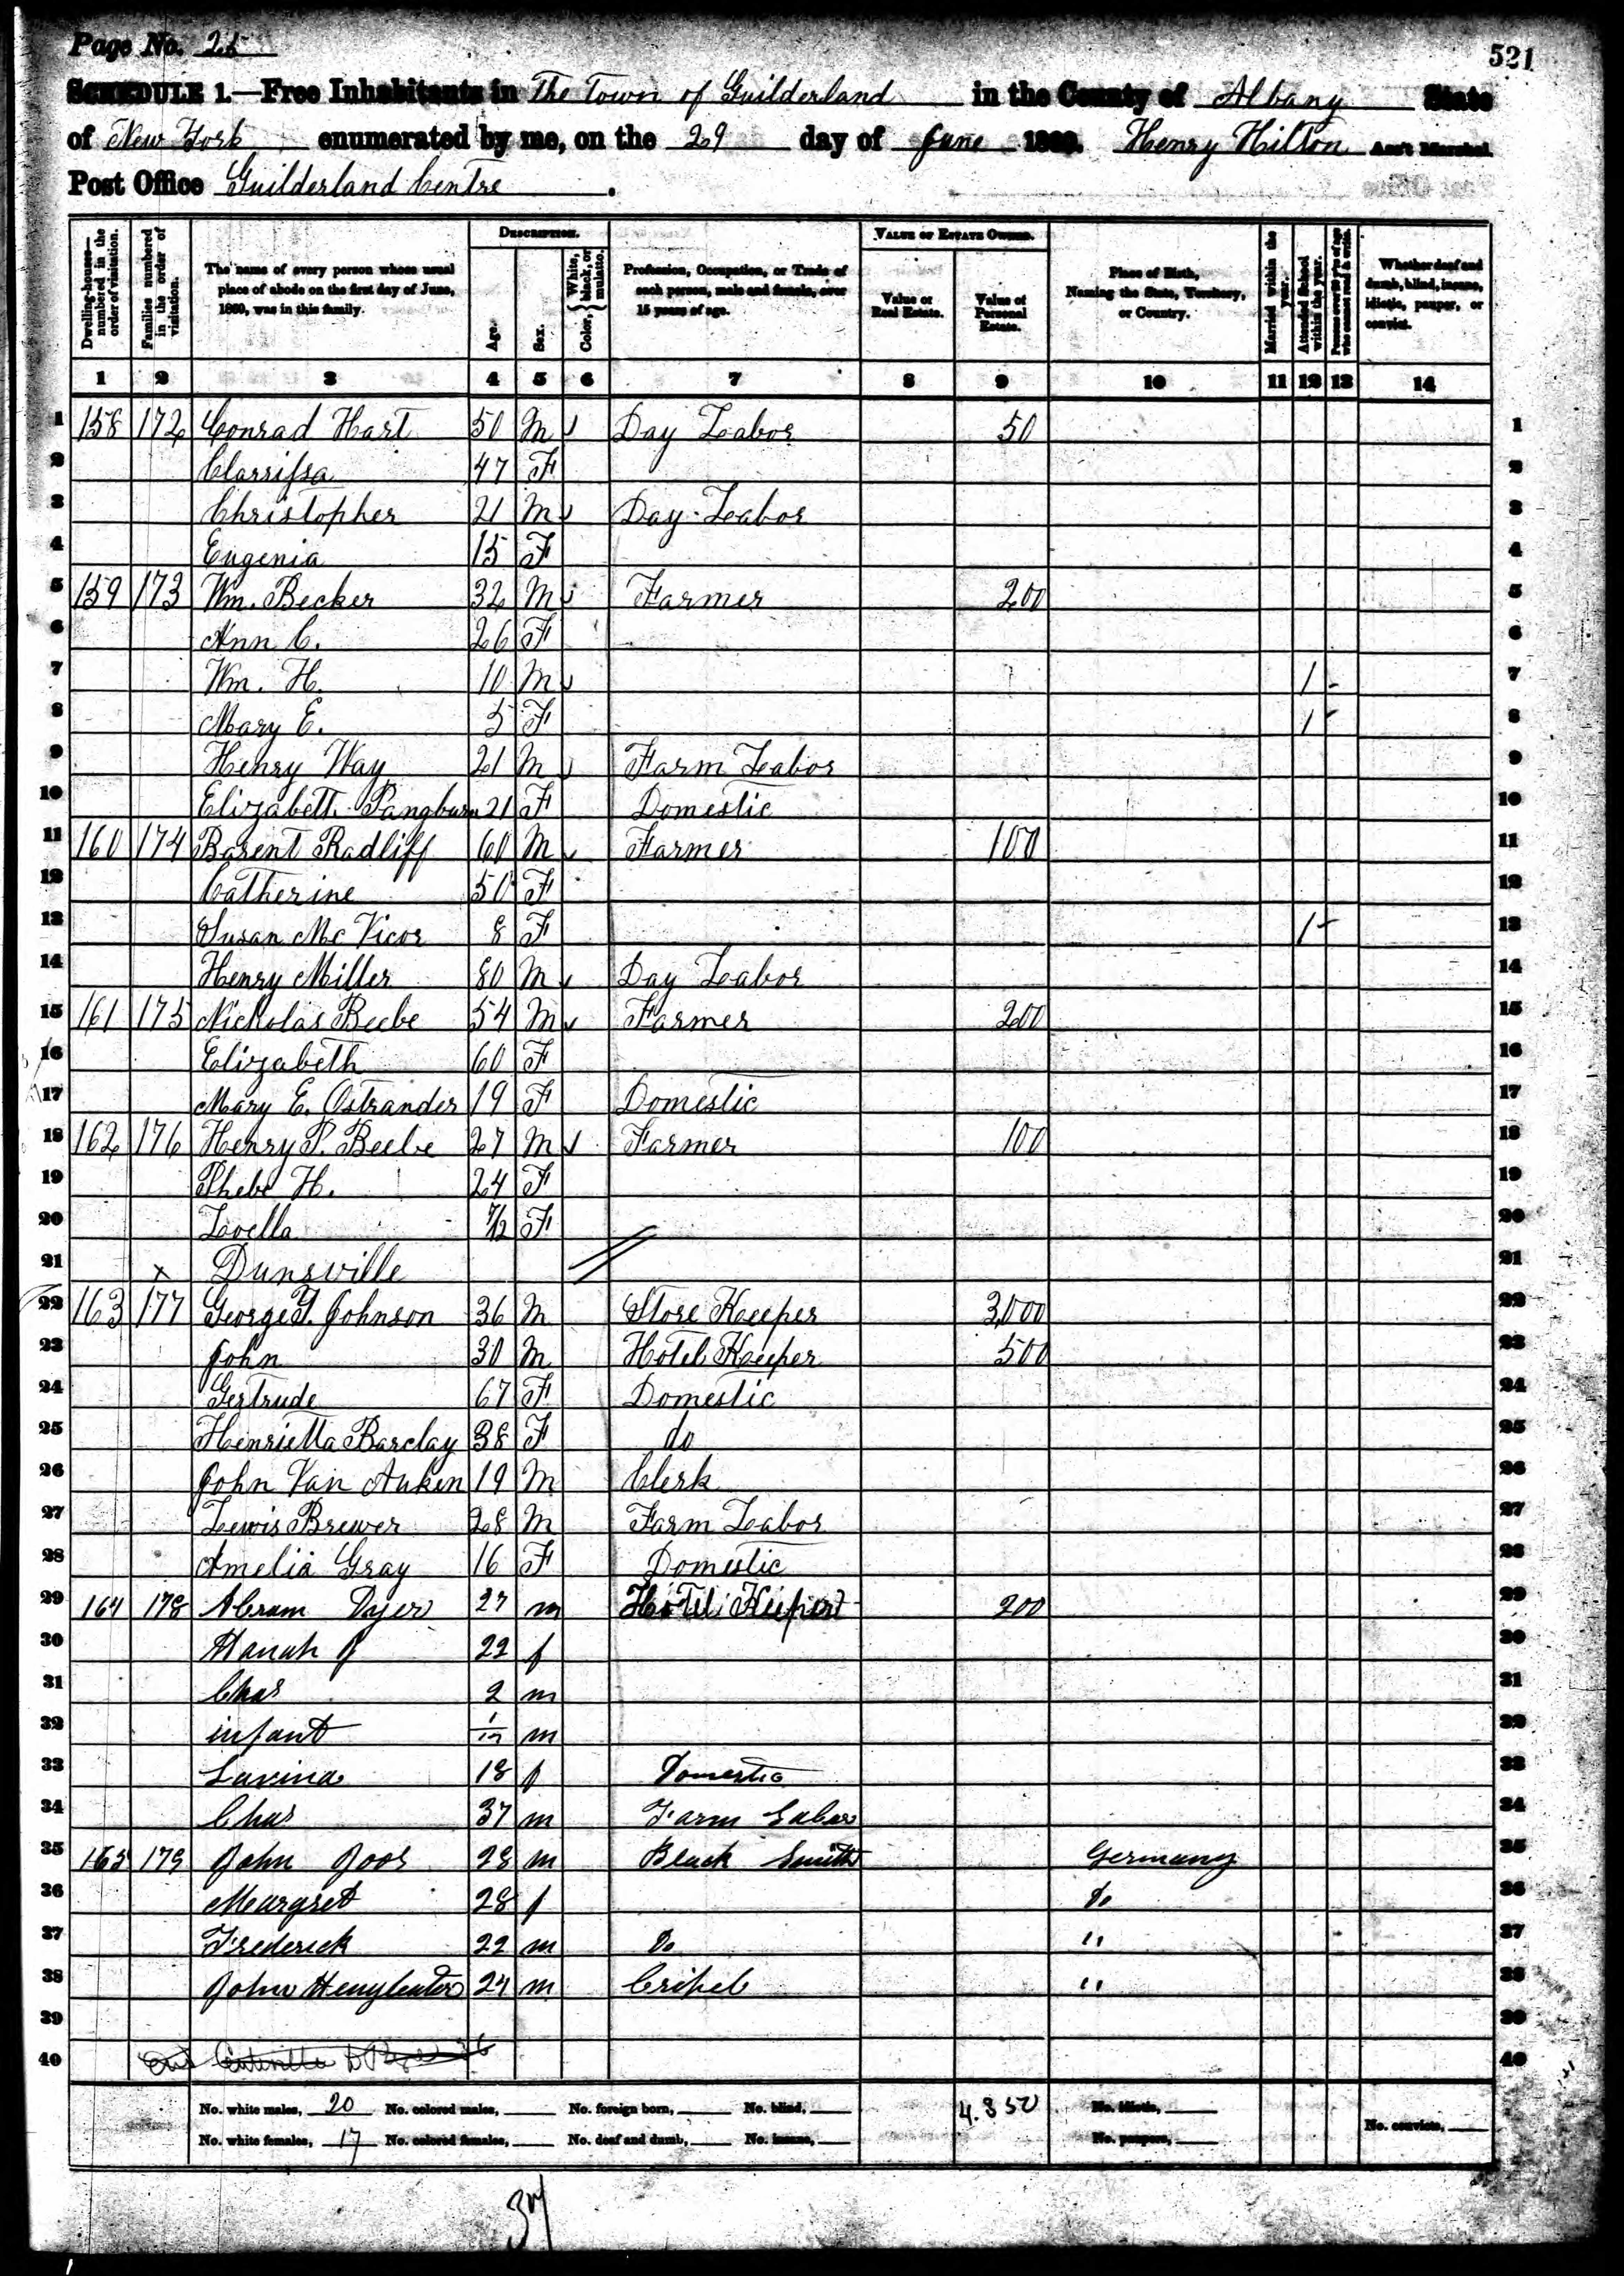 Page No. 25
521
SCHEDULE 1.—Free Inhabitants in The Town of Guilderland in the County of Albany State
of New York enumerated by me, on the 29 day of June 1860. Henry Hilton Ass't Marshal.
Post Office Guilderland Centre.
Dwelling-houses—numbered in the order of visitation.
Families numbered in the order of visitation.
The name of every person whose usual place of abode on the first day of June, 1860, was in this family.
DESCRIPTION.
Age.
Sex.
Color, White, black, or mulatto.
Profession, Occupation, or Trade of each person, male and female, over 15 years of age.
VALUE OF ESTATE OWNED.
Value of Real Estate.
Value of Personal Estate.
Place of Birth, Naming the State, Territory, or Country.
Married within the year.
Attended School within the year.
Persons over 20 y'rs of age who cannot read & write.
Whether deaf and dumb, blind, insane, idiotic, pauper, or convict.
1 2 3 4 5 6 7 8 9 10 11 12 13 14
1 158 172 Conrad Hart 50 M Day Labor 50 1
2 Clarrissa 47 F 2
3 Christopher 21 M Day Labor 3
4 Eugenia 15 F 4
5 159 173 Wm. Becker 32 M Farmer 200 5
6 Ann C. 26 F 6
7 Wm. H. 10 M 1 7
8 Mary E. 5 F 1 8
9 Henry Way 21 M Farm Labor 9
10 Elizabeth Pangburn 21 F Domestic 10
11 160 174 Barent Radliff 60 M Farmer 100 11
12 Catherine 50 F 12
13 Susan Mc Vicor 8 F 1 13
14 Henry Miller 80 M Day Labor 14
15 161 175 Nicholas Beebe 54 M Farmer 200 15
16 Elizabeth 60 F 16
17 Mary E. Ostrander 19 F Domestic 17
18 162 176 Henry P. Beebe 27 M Farmer 100 18
19 Phebe H. 24 F 19
20 Loella 7/12 F 20
21 x Dunsville 21
22 163 177 George Y. Johnson 36 M Store Keeper 3,000 22
23 John 30 M Hotel Keeper 500 23
24 Gertrude 67 F Domestic 24
25 Henrietta Barclay 38 F do 25
26 John Van Auken 19 M Clerk 26
27 Lewis Brewer 28 M Farm Labor 27
28 Amelia Gray 16 F Domestic 28
29 164 178 Abram Dyer 27 m Hotel Keeper 200 29
30 Hanah J 22 f 30
31 Chas 2 m 31
32 infant 1/12 m 32
33 Lavina 18 f Domestic 33
34 Chas 37 m Farm Labor 34
35 165 179 John Joos 28 m Black Smith Germany 35
36 Margret 28 f Do 36
37 Frederick 22 m Do " 37
38 John 24 m " 38
39 39
40 40
No. white males, 20 No. colored males, No. foreign born, No. blind, 4.350 No. idiotic,
No. white females, 17 No. colored females, No. deaf and dumb, No. insane, No. paupers, No. convicts,
37